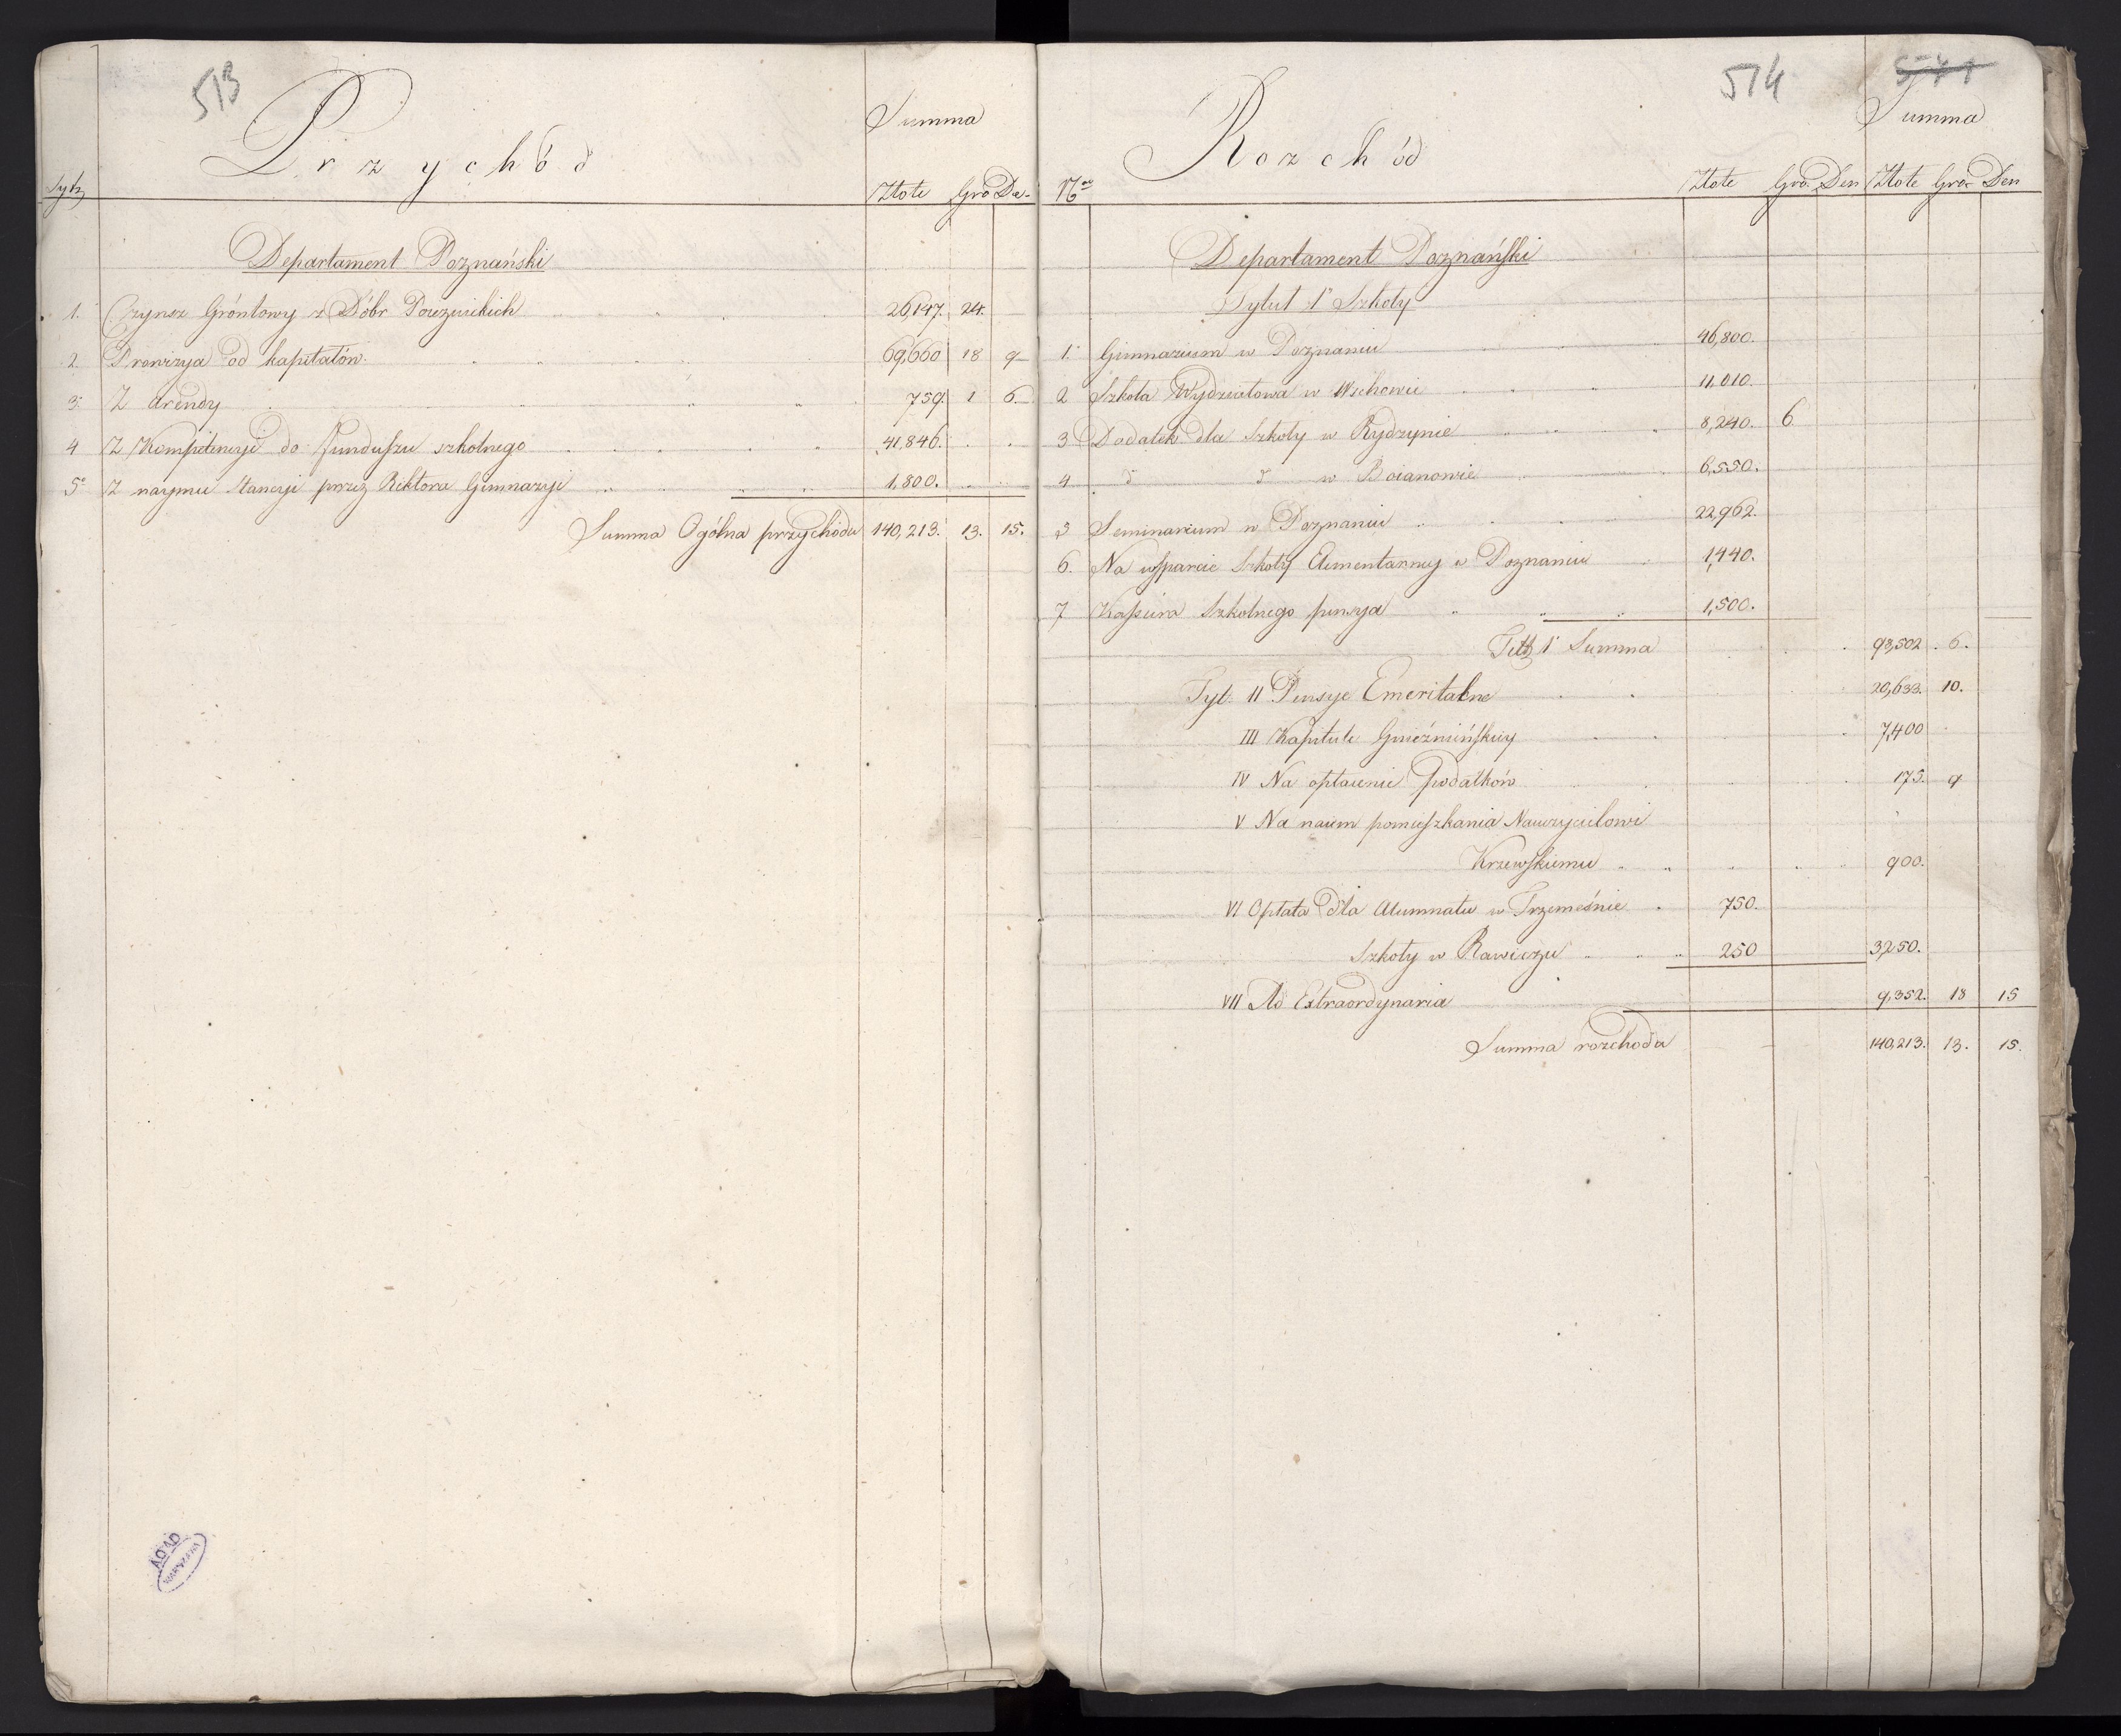 513
Przychód
Summa
Tytz Złote Gro De.
Departament Poznański
1. Czynsz Gróntowy z Dóbr Pojezuickich 26,147. 24.
2. Prowizya od kapitałów. 69,660 18 9
3. Z arendy 759. 1 6.
4 Z Kompetencyi do funduszu szkolnego 41,846.
5° Z naymu stancyi przez Rektora Gimnazyi 1,800.
Summa Ogólna przychodu 140,213. 13. 15.
514 571
Rozchód
Summa
Nro Złote Gro. Den Złote Gro: Den
Departament Poznański
Tytuł 1° Szkoły
1. Gimnazium w Poznaniu 46,800.
2 Szkoła Wydziałowa w Wschowie 11,010.
3 Dodatek dla Szkoły w Rydzynie 8,240. 6
4 d d w Boianowie 6,550.
5 Seminarium w Poznaniu 22,962.
6. Na wsparcie Szkoły Elementarney w Poznaniu 1,440.
7 Kassiera Szkolnego pensya 1,500.
Titz 1° Summa 98,502. 6.
Tyt: II Pensye Emeritalne 20,633. 10.
III Kapitule Gnieźnieńskiey 7,400
IV Na opłacenie podatków 175. 9
V Na naiem pomieszkania Nauczycielowi
Krzewskiemu 900.
VI Opłata dla Alumnatu w Trzemeśnie 750.
Szkoły w Rawiczu 250 3,250.
VII Ad Extraordynaria 9,352. 18 15
Summa rozchodu 140,213. 13. 15.
AGAD
WARSZAWA